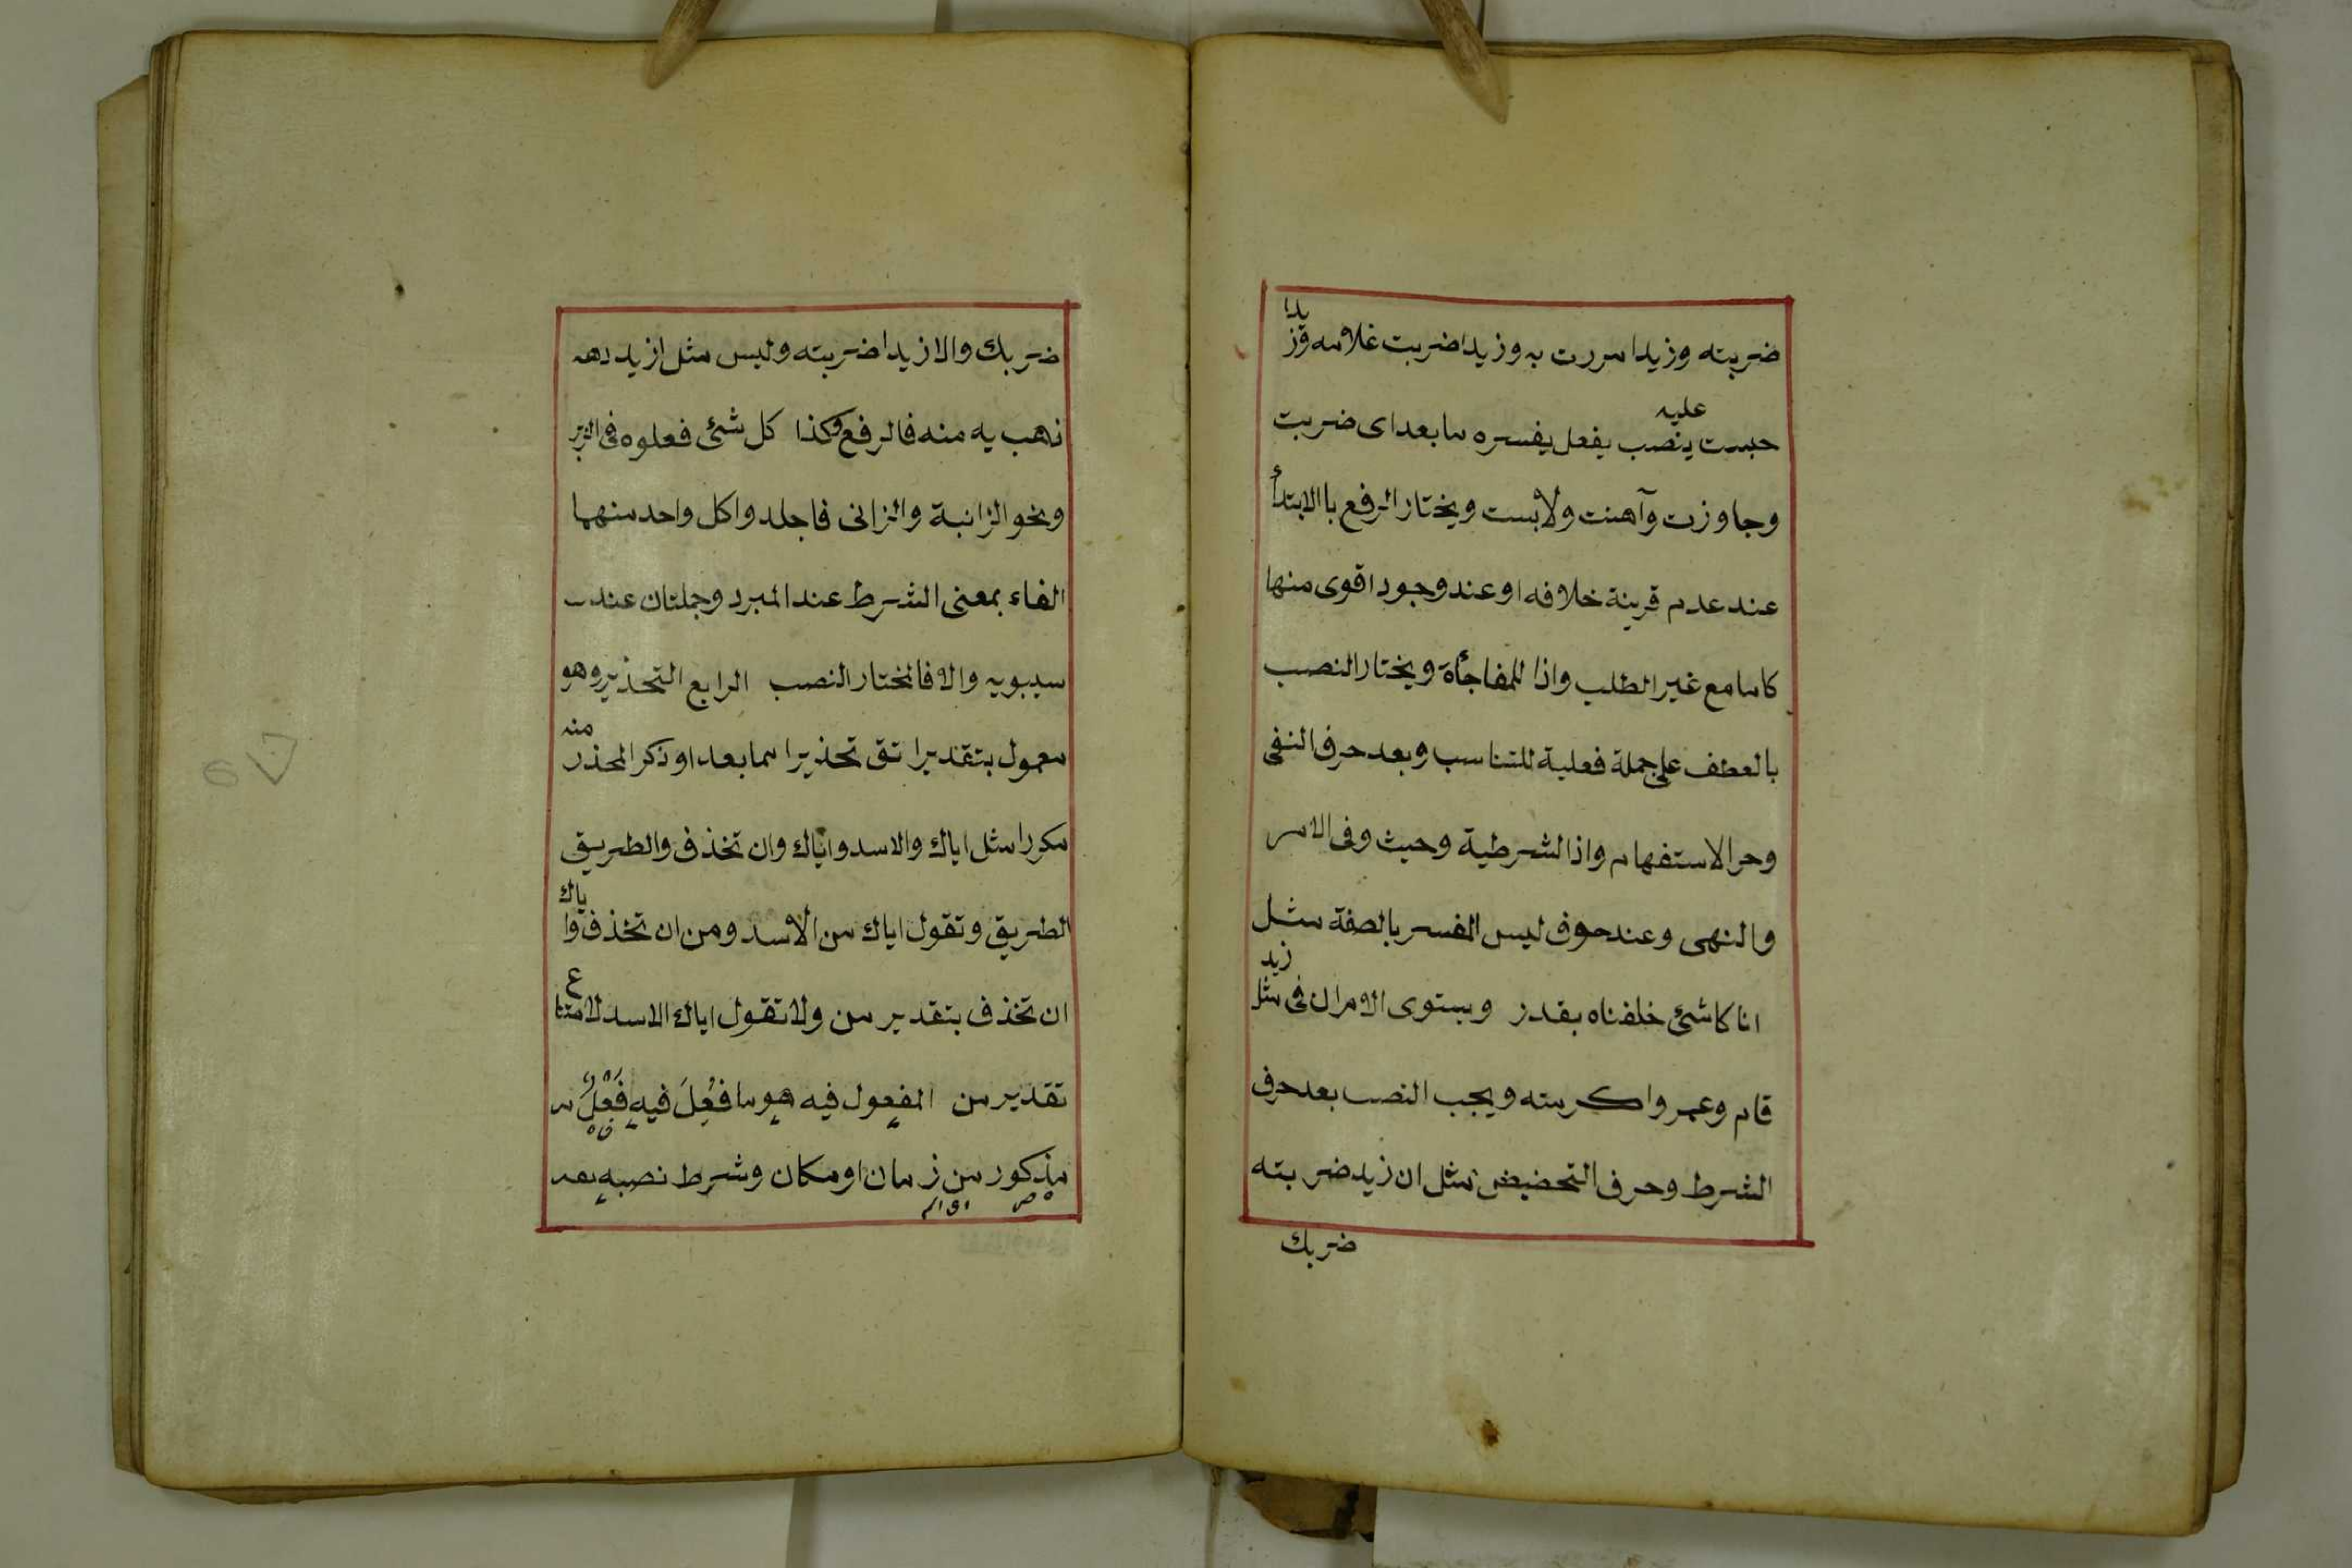 ضربته وزيدا مررت به وزيدا ضربت غلامه وزيدا
حبست عليه ينصب يفعل يفسره ما بعد اى ضربت
وجاوزت وآهنت ولابست ويختار الرفع با الابتدأ
عند عدم قرينة خلافه او عند وجود اقوى منها
كاما مع غير الطلب واذا للمفاجأة ويختار النصب
بالعطف على جملة فعلية للتناسب وبعد حرف النفى
وحر الاستفهام واذا الشرطية وحيث وفى الامر
والنهى وعند خوف ليس المفسر بالصفة مثل
انا كاشئ خلفناه بقدر ويستوى الامران فى مثل زيد
قام وعمروا كرمته ويجب النصب بعد حرف
الشرط وحرف التحضيض مثل ان زيد ضربته
ضربك
ضربك والا زيدا ضربته وليس مثل ازيد دهه
ذهب به منه فالرفع وكذا كل شئ فعلوه فى الزبر
ونحو الزانية والزانى فاجلدوا كل واحد منهما
الفاء بمعنى الشرط عند المبرد وجملتان عند
سيبويه والا فالمختار النصب الرابع التحذير وهو
معمول بتقدير اتق تحذيرا مما بعد او ذكر المحذر منه
مكررا مثل اياك والاسد واياك وان تحذف والطريق
الطريق وتقول اياك من الاسد ومن ان تحذف واياك
ان تحذف بتقدير من ولا تقول اياك الاسد لامتناع
تقدير من المفعول فيه هو ما فُعِلَ فيهِ فَعْلٌ م
مذكور من زمان او مكان وشرط نصبهِ بعد